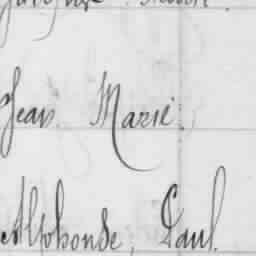 Jean Marie.
Alphonse, Paul.